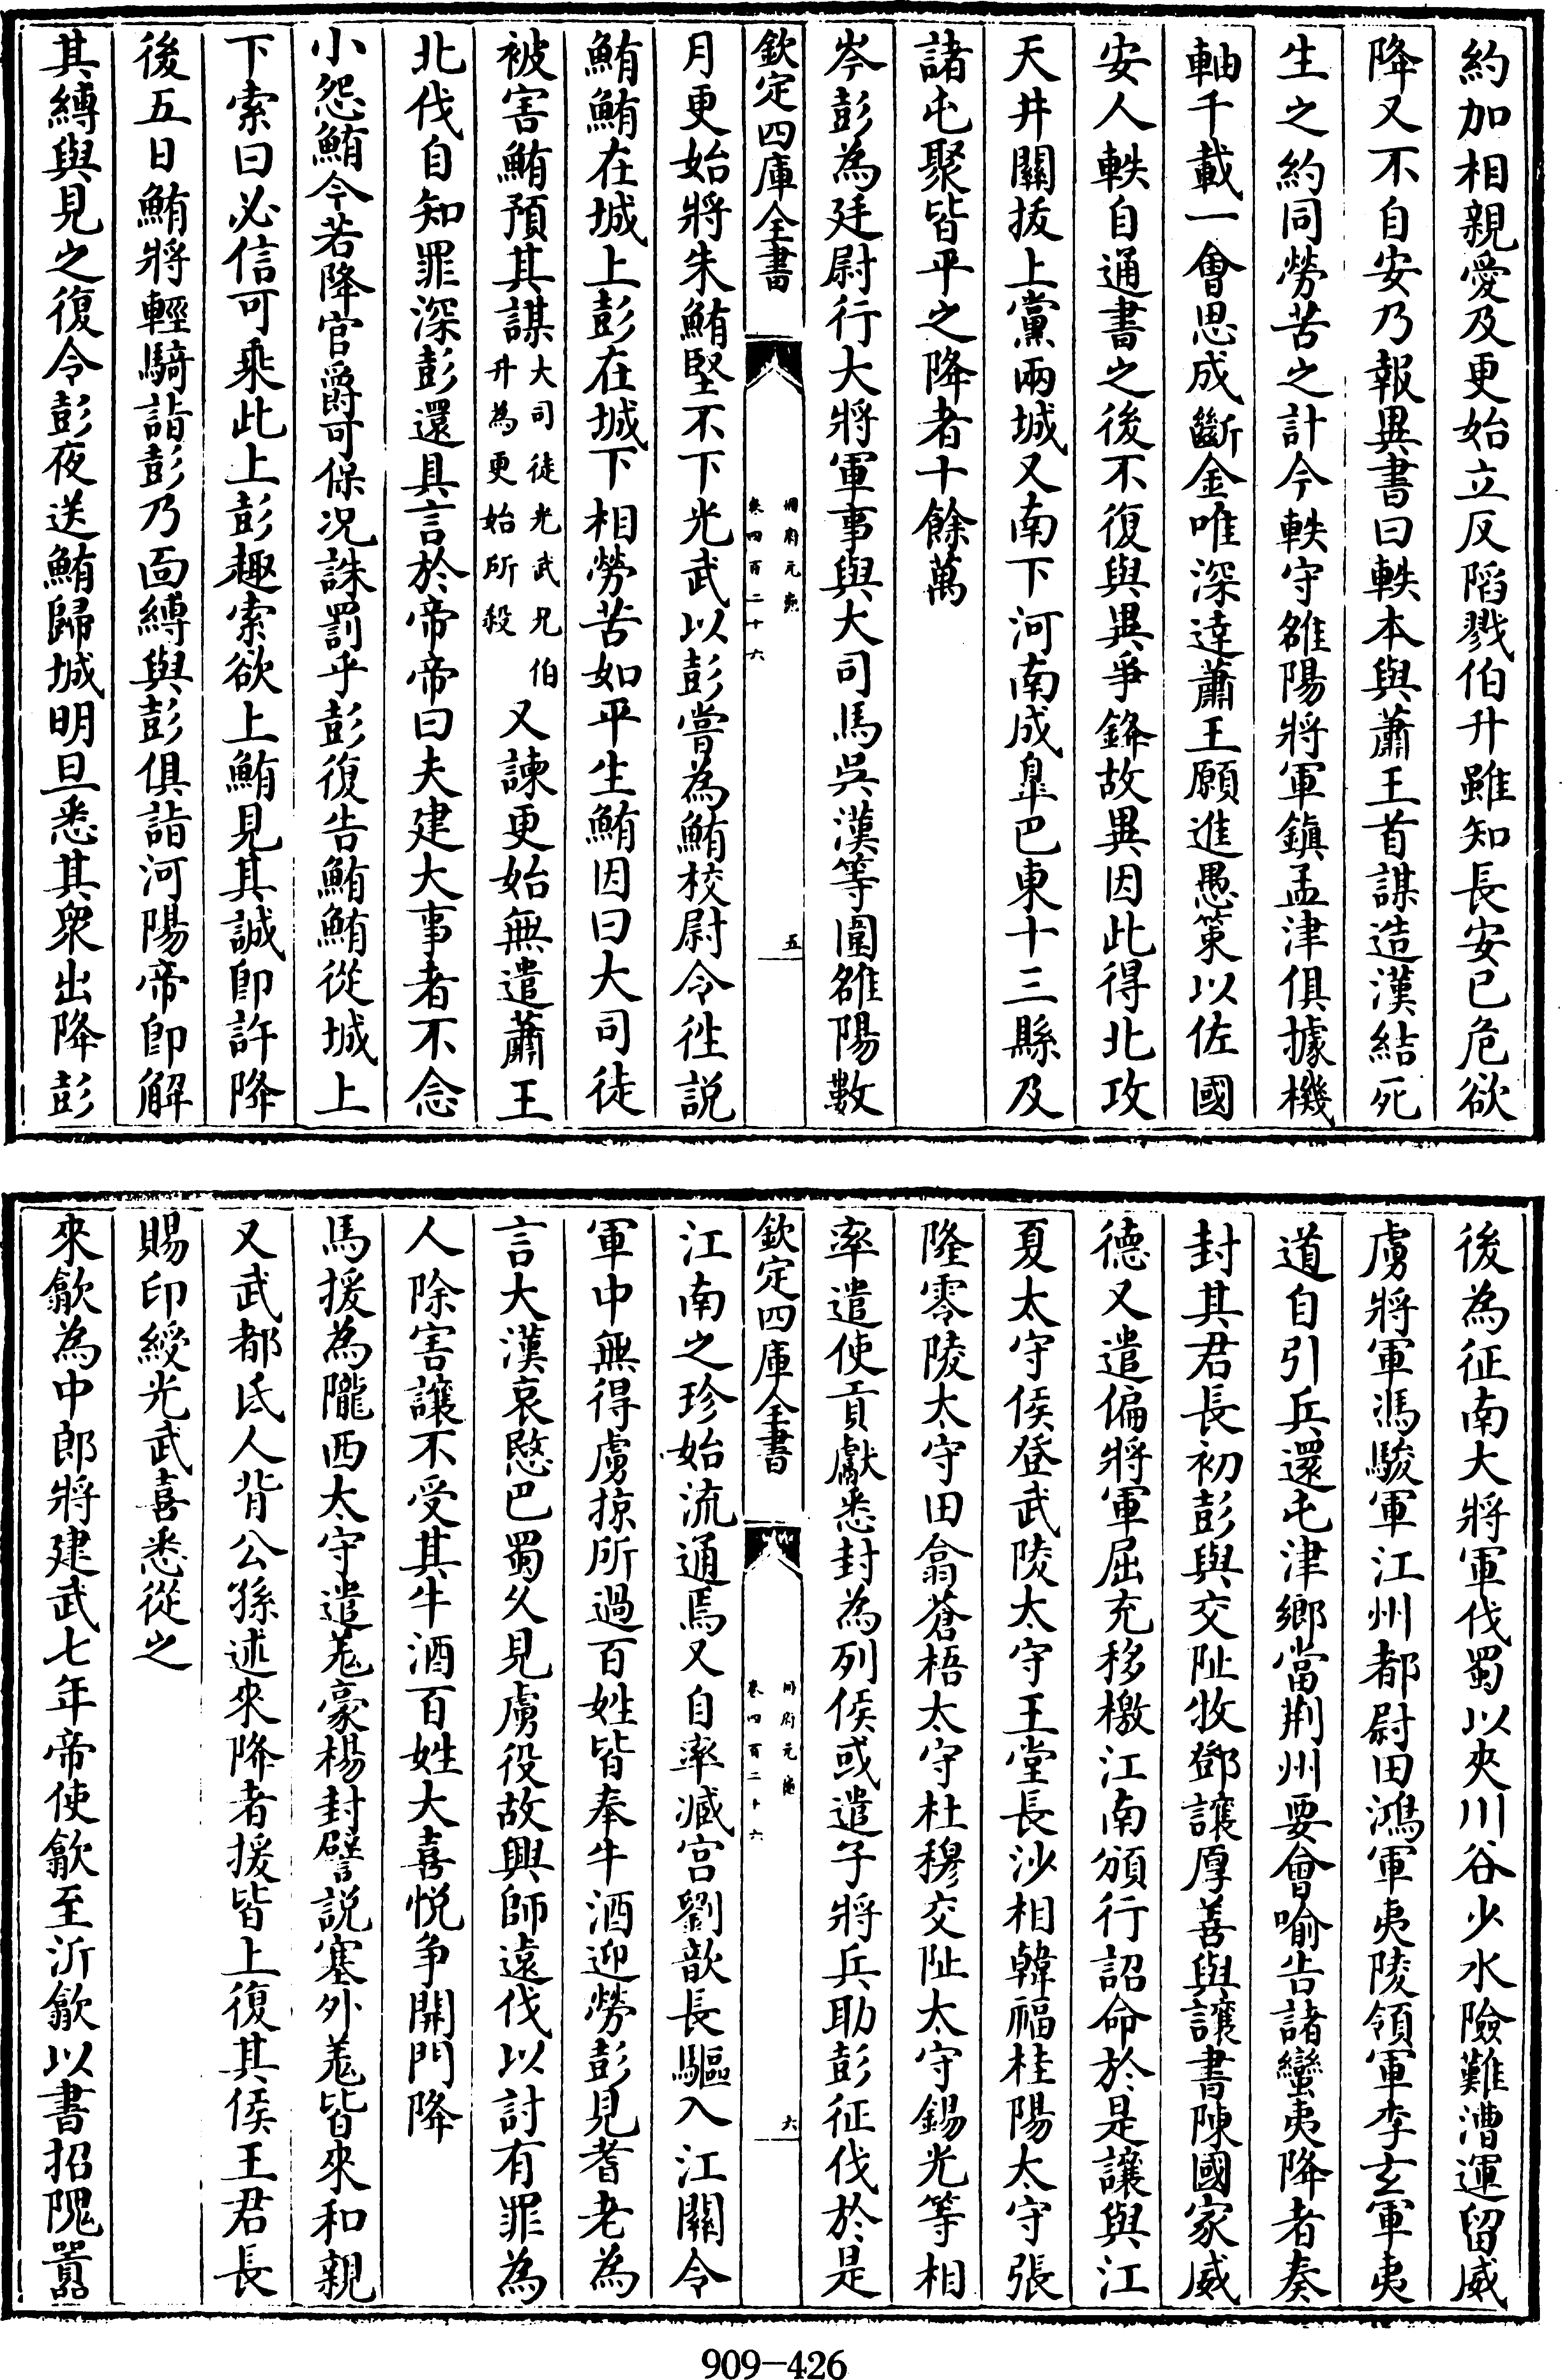 約加相親愛及更始立反陷戮伯升雖知長安已危欲
降又不自安乃報異書曰軼本與蕭王首謀造漢結死
生之約同勞苦之計今軼守雒陽將軍鎮孟津俱據機
軸千載一會思成斷金唯深達蕭王願進愚策以佐國
安人軼自通書之後不復與異爭鋒故異因此得北攻
天井關拔上黨兩城又南下河南成臯巳東十三縣及
諸屯聚皆平之降者十餘萬
岑彭為廷尉行大將軍事與大司馬吳漢等圍雒陽數
欽定四庫全書
冊府元龜
卷四百二十六
五
月更始將朱鮪堅不下光武以彭嘗為鮪校尉令徃說
鮪鮪在城上彭在城下相勞苦如平生鮪因曰大司徒
被害鮪預其謀大司徒光武兄伯升為更始所殺又諫更始無遣蕭王
北伐自知罪深彭還具言於帝帝曰夫建大事者不念
小怨鮪今若降官爵可保况誅罰乎彭復告鮪鮪從城上
下索曰必信可乘此上彭趣索欲上鮪見其誠卽許降
後五日鮪將輕騎詣彭乃面縛與彭俱詣河陽帝卽解
其縛與見之復令彭夜送鮪歸城明旦悉其衆出降彭
後為征南大將軍伐蜀以夾川谷少水險難漕運留威
虜將軍馮駿軍江州都尉田鴻軍夷陵領軍李玄軍夷
道自引兵還屯津鄉當荆州要會喻告諸蠻夷降者奏
封其君長初彭與交阯牧鄧讓厚善與讓書陳國家威
德又遣偏將軍屈充移檄江南頒行詔命於是讓與江
夏太守侯登武陵太守王堂長沙相韓福桂陽太守張
隆零陵太守田翕蒼梧太守杜穆交阯太守錫光等相
率遣使貢獻悉封為列侯或遣子將兵助彭征伐於是
欽定四庫全書
冊府元龜
卷四百二十六
六
江南之珍始流通焉又自率臧宮劉歆長驅入江關令
軍中無得虜掠所過百姓皆奉牛酒迎勞彭見耆老為
言大漢哀愍巴蜀久見虜役故興師遠伐以討有罪為
人除害讓不受其牛酒百姓大喜悦争開門降
馬援為隴西太守遣羌豪楊封譬說塞外羌皆來和親
又武都氐人背公孫述來降者援皆上復其侯王君長
賜印綬光武喜悉從之
來歙為中郎將建武七年帝使歙至沂歙以書招隗囂
909-426